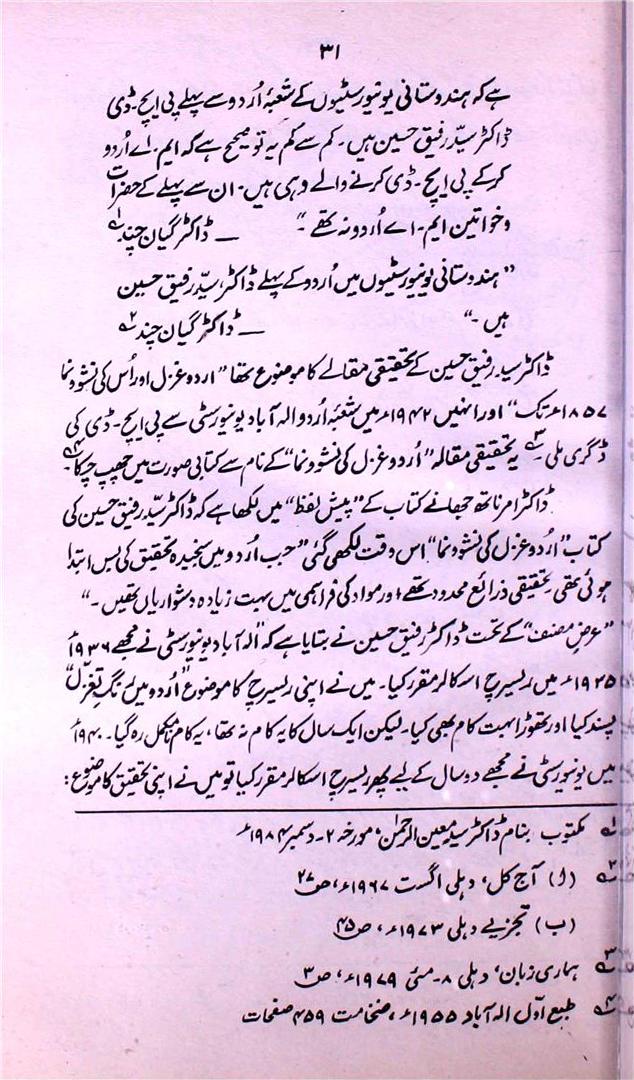 ۳۱
ہے کہ ہندوستانی یونیورسٹیوں کے شعبۂ اُردو سے پہلے پی ایچ۔ڈی
ڈاکٹر سیّد رفیق حسین ہیں۔ کم سے کم یہ تو صحیح ہے کہ ایم۔اے اُردو
کرکے پی ایچ۔ڈی کرنے والے وہی ہیں۔ ان سے پہلے کے حضرات
و خواتین ایم۔اے اُردو نہ تھے۔“ — ڈاکٹر گیان چند ۱؎
”ہندوستانی یونیورسٹیوں میں اُردو کے پہلے ڈاکٹر، سیّد رفیق حسین
ہیں۔“ — ڈاکٹر گیان چند ۲؎
ڈاکٹر سید رفیق حسین کے تحقیقی مقالے کا موضوع تھا ”اردو غزل اور اُس کی نشوونما
۱۸۵۷ء تک“ اور انہیں ۱۹۴۲ء میں شعبۂ اُردو الہ آباد یونیورسٹی سے پی ایچ۔ڈی کی
ڈگری ملی۔۳؎ یہ تحقیقی مقالہ ”اُردو غزل کی نشوونما“ کے نام سے کتابی صورت میں چھپ چکا۔۴؎
ڈاکٹر امرناتھ جھا نے کتاب کے ”پیش لفظ“ میں لکھا ہے کہ ڈاکٹر سیّد رفیق حسین کی
کتاب ”اُردو غزل کی نشوونما“ اس وقت لکھی گئی ”جب اُردو میں سنجیدہ تحقیق کی بس ابتدا
ہوئی تھی۔ تحقیقی ذرائع محدود تھے اور مواد کی فراہمی میں بہت زیادہ دشواریاں تھیں۔“
”عرضِ مصنف“ کے تحت ڈاکٹر رفیق حسین نے بتایا ہے کہ ”الہ آباد یونیورسٹی نے مجھے ۱۹۳۶ء
۱۹۳۵ء میں ریسرچ اسکالر مقرر کیا۔ میں نے اپنی ریسرچ کا موضوع ”اُردو میں رنگِ تغزّل“
پسند کیا اور تھوڑا بہت کام بھی کیا۔ لیکن ایک سال کا یہ کام نہ تھا، یہ کام نامکمل رہ گیا۔ ۱۹۴۰ء
میں یونیورسٹی نے مجھے دو سال کے لیے پھر ریسرچ اسکالر مقرر کیا تو میں نے اپنی تحقیق کا موضوع:
۱؎ مکتوب بنام ڈاکٹر سید معین الرحمٰن، مورخہ ۲۔دسمبر ۱۹۸۴ء
۲؎ (ا) آج کل، دہلی اگست ۱۹۶۷ء، ص ۲۷
(ب) تجزیے دہلی ۱۹۷۳ء، ص ۴۵
۳؎ ہماری زبان، دہلی ۸۔مئی ۱۹۷۹ء، ص ۳
۴؎ طبع اوّل الہ آباد ۱۹۵۵ء، ضخامت ۴۵۹ صفحات